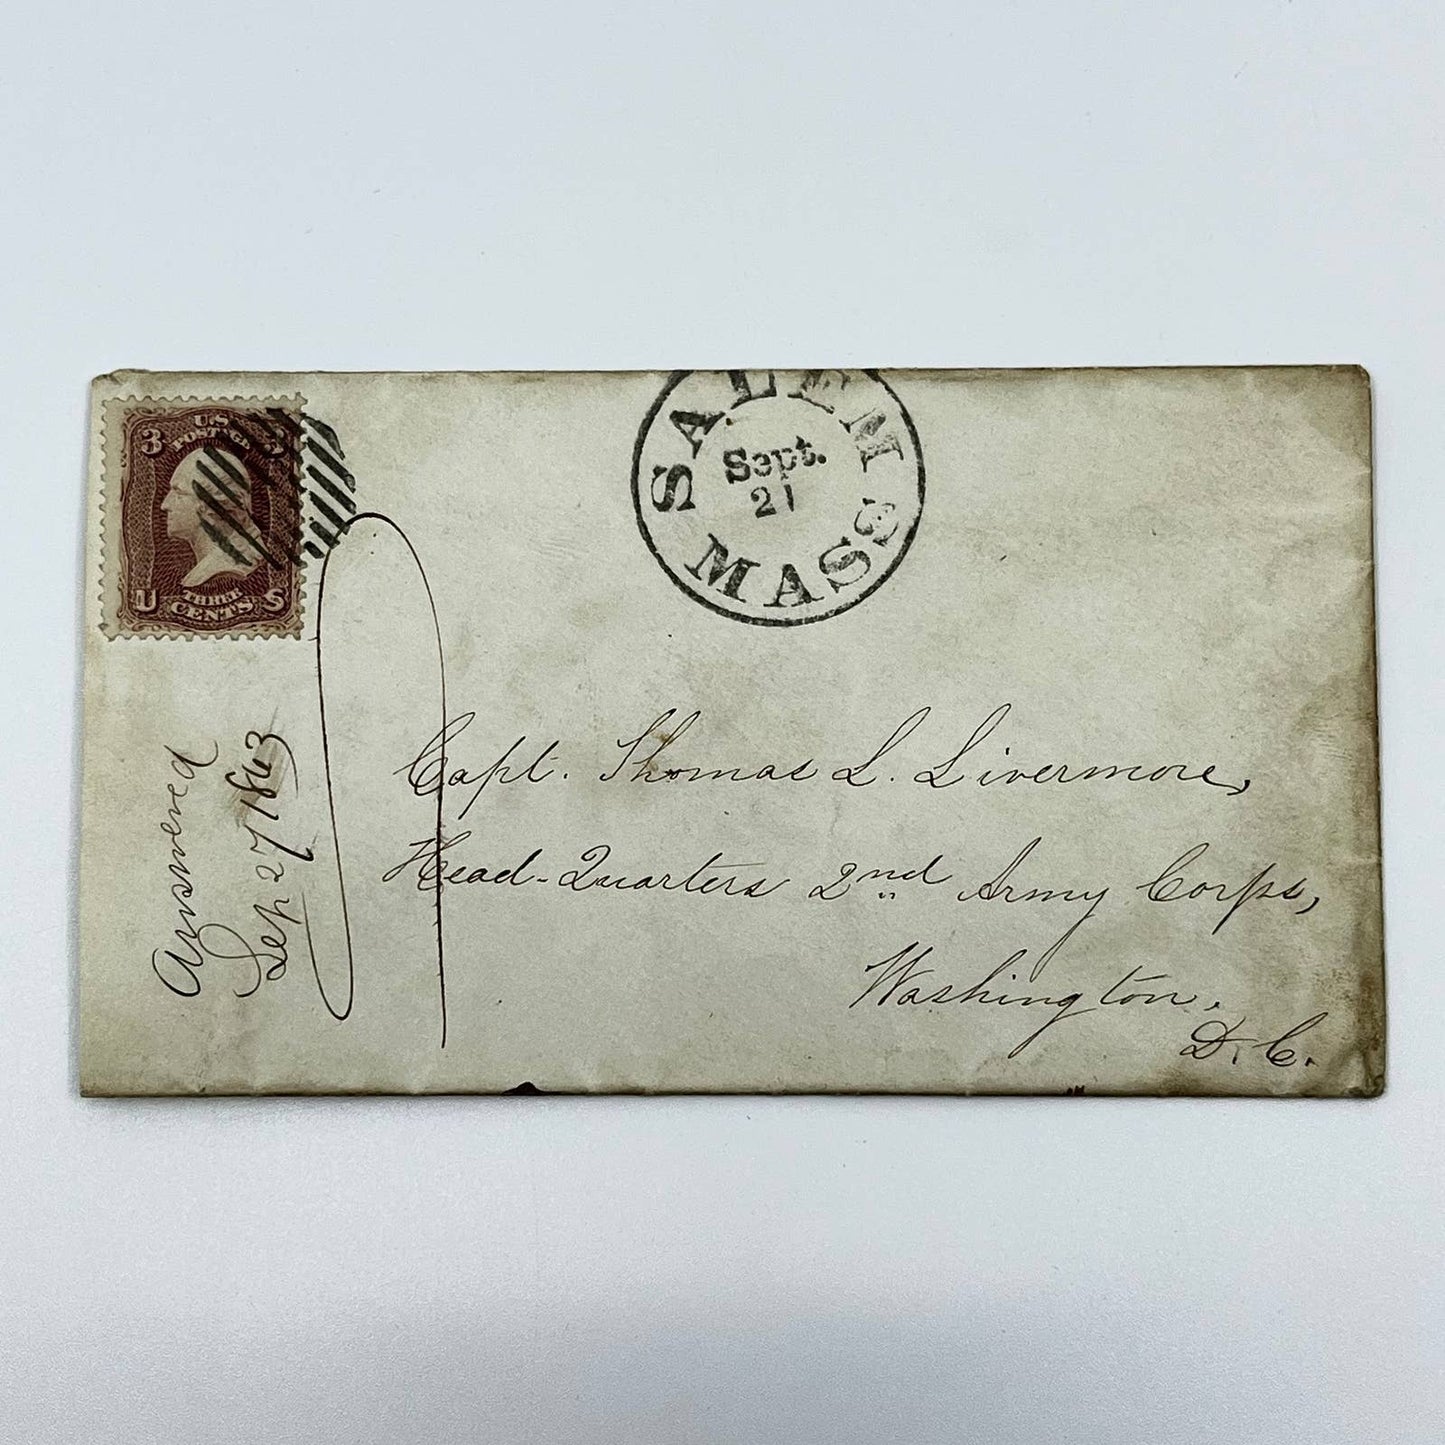 3 U.S. 3
POSTAGE
U THREE S
CENTS
SALEM
Sept.
21
MASS
Answered
Sep 27 1863
Capt. Thomas L. Livermore,
Head-Quarters 2nd Army Corps,
Washington.
D. C.